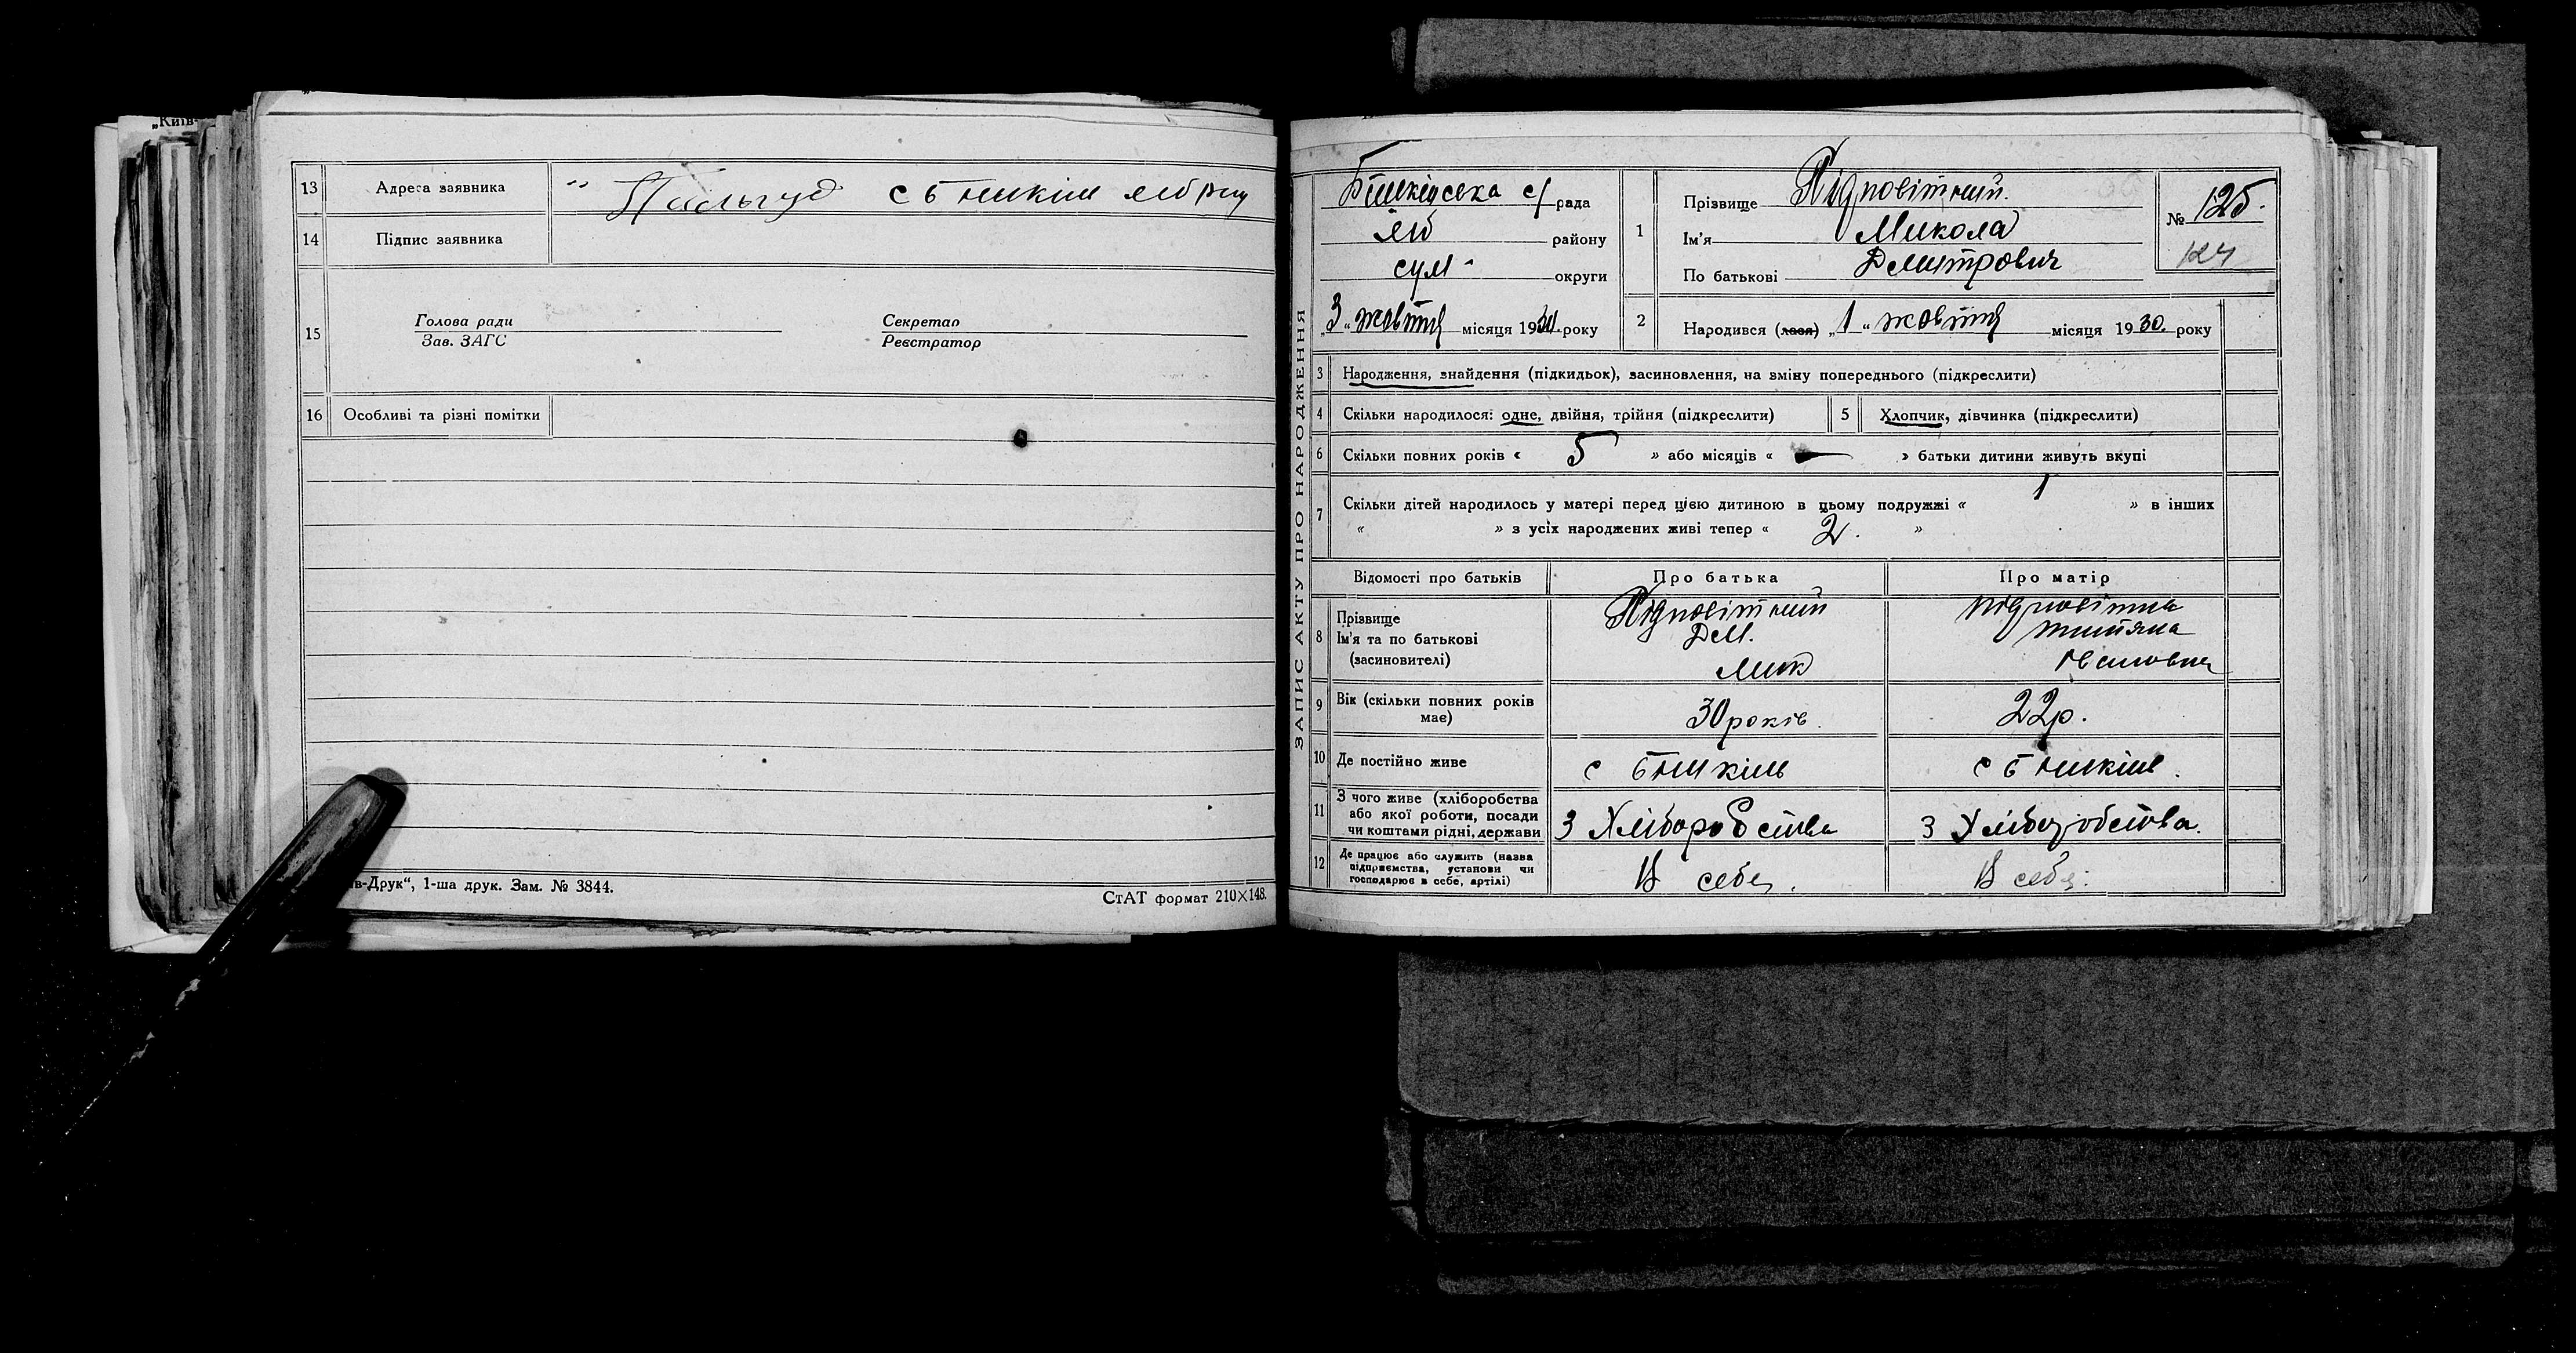 „Київ-
13 Адреса заявника с Бишкінь
14 Підпис заявника
15 Голова ради Секретар
Зав. ЗАГС Реєстратор
16 Особливі та різні помітки
в-Друк“, 1-ша друк. Зам. № 3844.
СтАТ формат 210×148.
ЗАПИС АКТУ ПРО НАРОДЖЕННЯ
Бишкінська с/рада
району
сум округи
„3“ жовтня місяця 1930 року
1 Прізвище Підповітний.
Ім'я Микола
По батькові Дмитрович
№ 125.
124
2 Народився (лася) „1“ жовтня місяця 1930. року
3 Народження, знайдення (підкидьок), засиновлення, на зміну попереднього (підкреслити)
4 Скільки народилося: одне, двійня, трійня (підкреслити) 5 Хлопчик, дівчинка (підкреслити)
6 Скільки повних років « 5 » або місяців « — » батьки дитини живуть вкупі
7 Скільки дітей народилось у матері перед цією дитиною в цьому подружжі « 1 » в інших
« » з усіх народжених живі тепер « 2. »
Відомості про батьків Про батька Про матір
8 Прізвище Підповітний Підповітна
Ім'я та по батькові Дм. Титяна
(засновителі) Мик Івановна
9 Вік (скільки повних років має) 30 років. 22 р.
10 Де постійно живе с Бишкінь с Бишкінь.
11 З чого живе (хліборобства
або якої роботи, посади
чи коштами рідні, держави З Хліборобства З Хліборобства.
12 Де працює або служить (назва
підприємства, установи чи
господарює в себе, артілі) В себе. В себе.